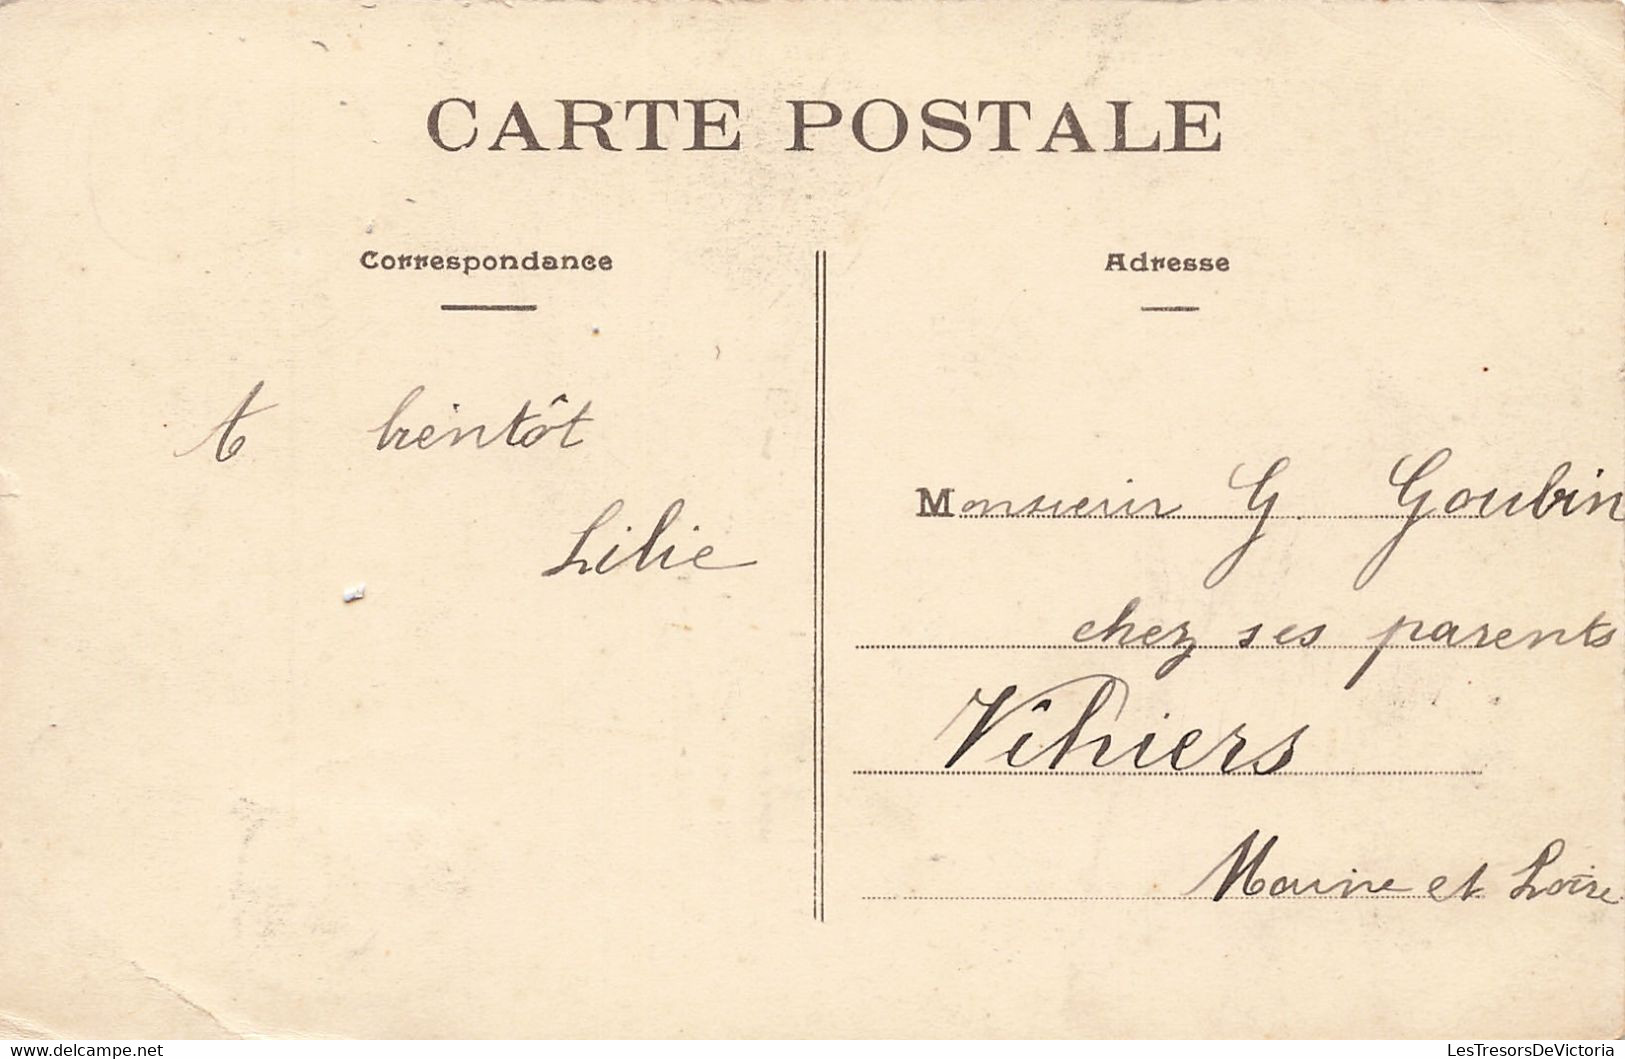 CARTE POSTALE
Correspondance
A bientôt
Lilie
Adresse
Monsieur G. Goubin
chez ses parents
Vihiers
Maine et Loire
www.delcampe.net
LesTresorsDeVictoria